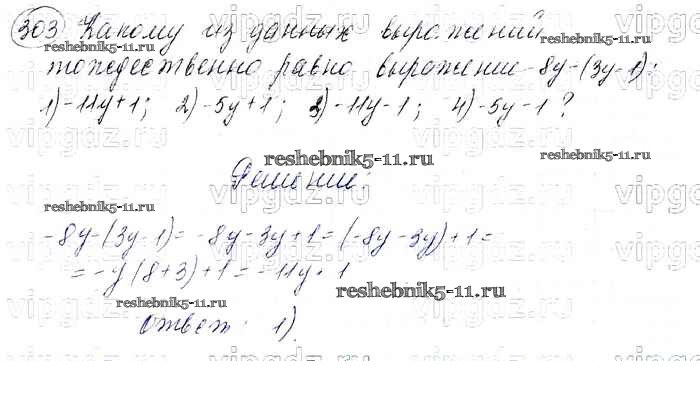 303 Какому из данных выражений
тождественно равно выражение -8y-(3y-1):
1) -11y+1; 2) -5y+1; 3) -11y-1; 4) -5y-1?
Решение:
-8y-(3y-1)= -8y-3y+1=(-8y-3y)+1=
= -y(8+3)+1= -11y+1
ответ: 1).
reshebnik5-11.ru
reshebnik5-11.ru
reshebnik5-11.ru
reshebnik5-11.ru
reshebnik5-11.ru
reshebnik5-11.ru
vipgdz.ru